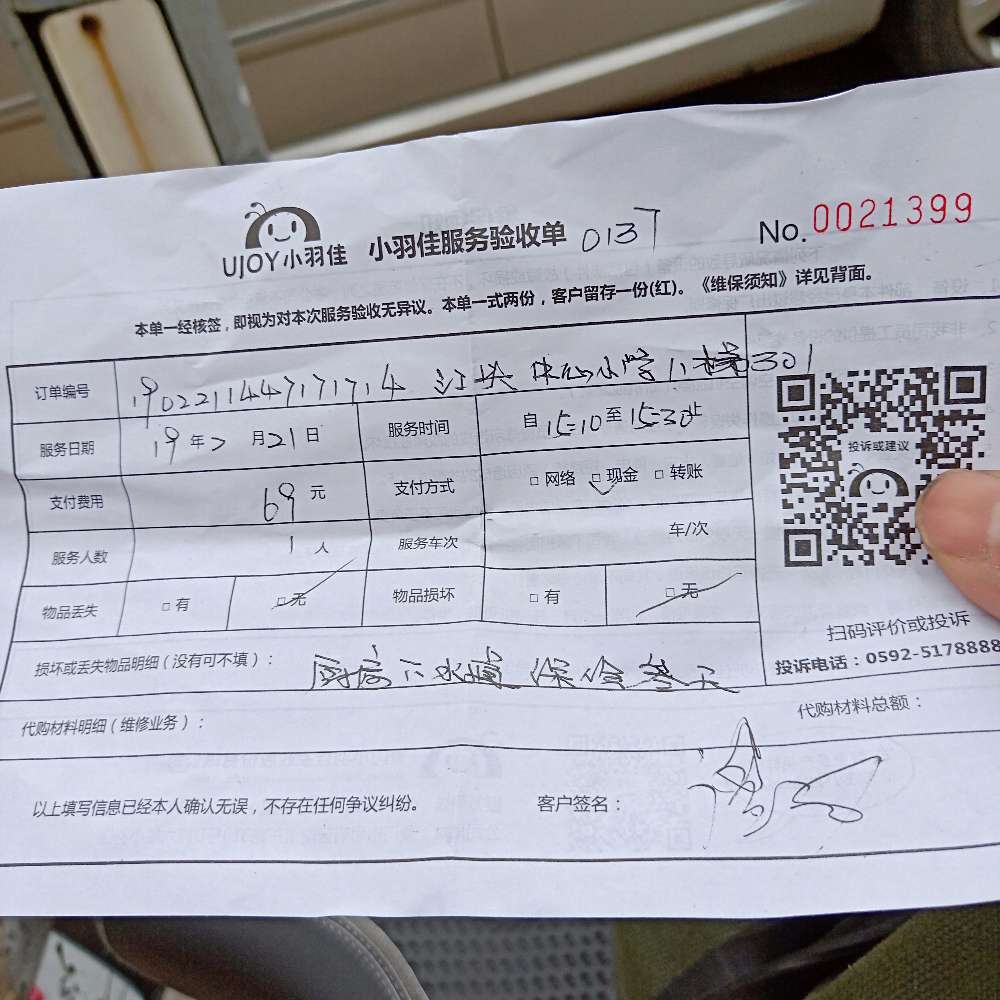 UJOY小羽佳 小羽佳服务验收单 0137 No. 0021399
本单一经核签，即视为对本次服务验收无异议。本单一式两份，客户留存一份(红)。《维保须知》详见背面。
订单编号 190221144717171714 中心小学 301
服务日期 19年2月21日 服务时间 自15:10至15:30止
支付费用 69元 支付方式 □网络 □现金 □转账
服务人数 1人 服务车次 车/次
物品丢失 □有 □无 物品损坏 □有 □无
投诉或建议
扫码评价或投诉
投诉电话：0592-5178888
损坏或丢失物品明细（没有可不填）： 厨房下水道 保修叁天
代购材料明细（维修业务）： 代购材料总额：
以上填写信息已经本人确认无误，不存在任何争议纠纷。 客户签名：